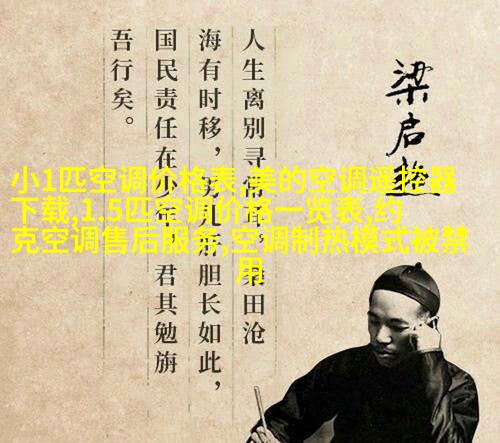 梁启超
人生离别寻常事。桑田沧
海有时移，男儿肝胆长如此，
国民责任在少年。君其勉旃
吾行矣。
小1匹空调价格表,美的空调遥控器
下载,1.5匹空调价格一览表,约
克空调售后服务,空调制热模式被禁
用